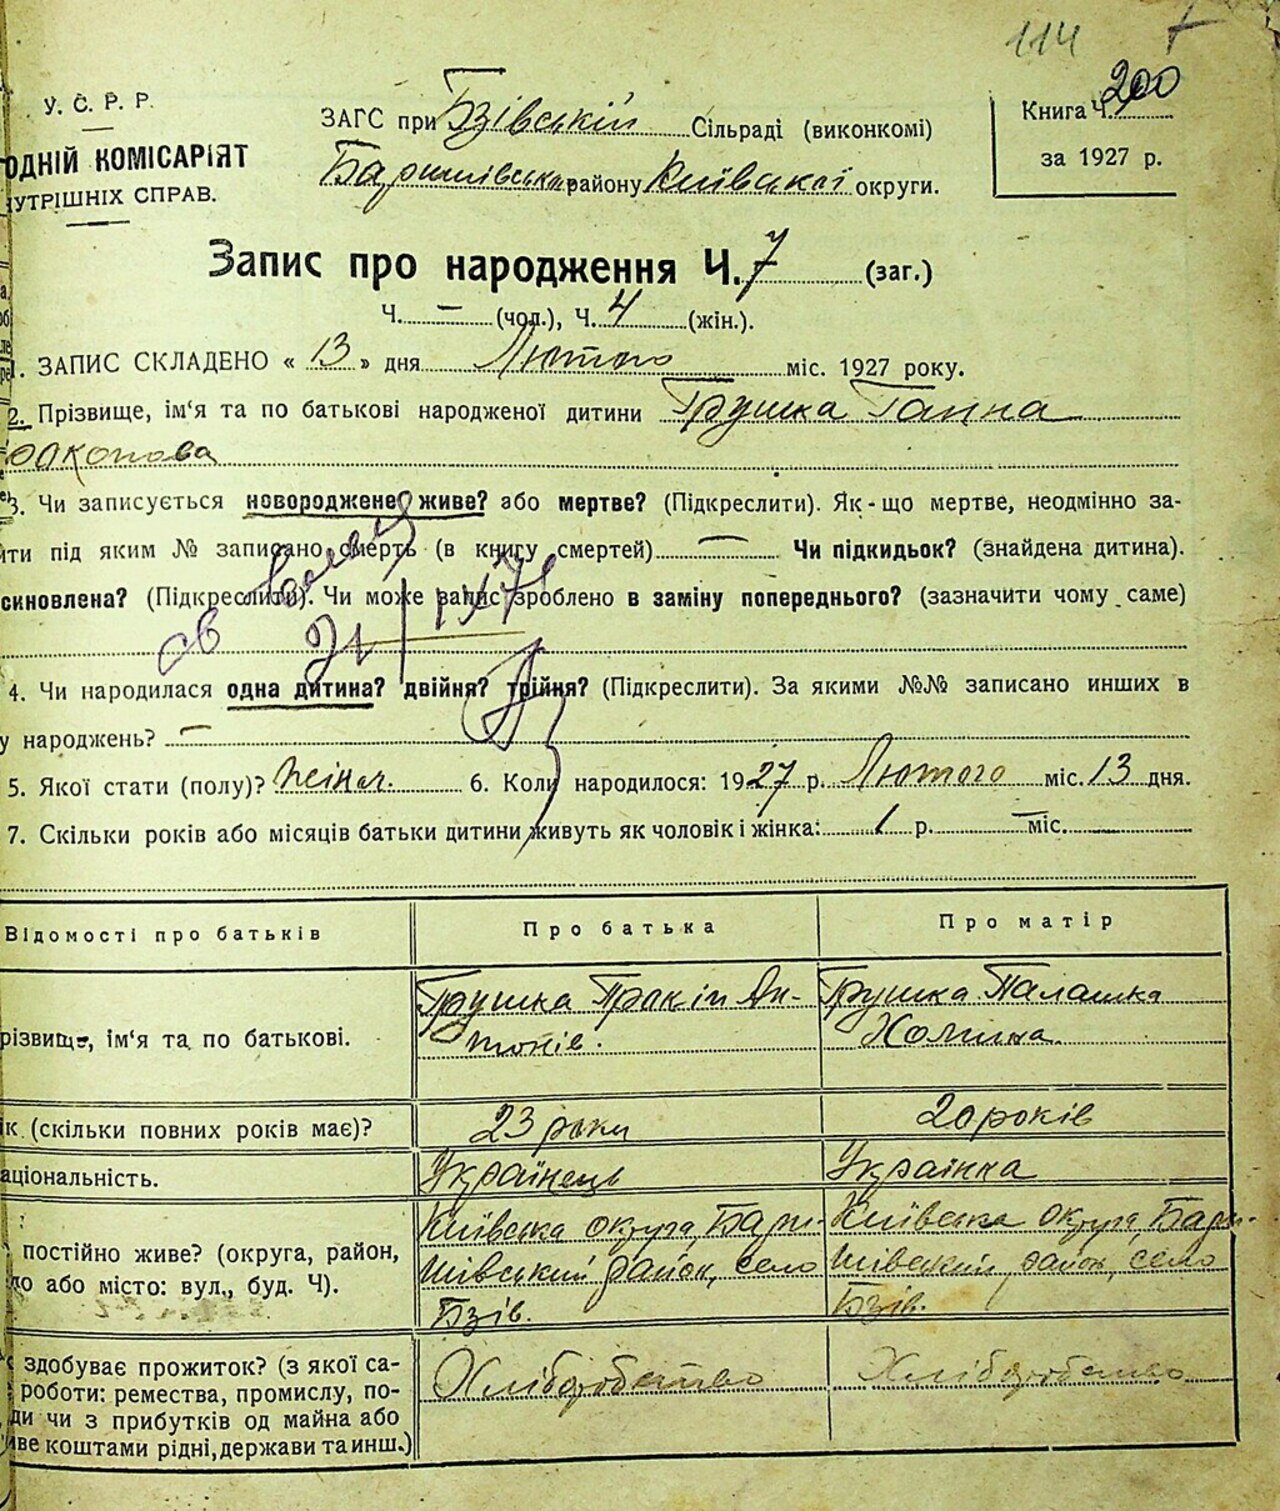 114
У. С. Р. Р.
ОДНІЙ КОМІСАРІЯТ
УТРІШНІХ СПРАВ.
ЗАГС при Бзівській Сільраді (виконкомі)
Баришівськ. району Київської округи.
Книга Ч. 200
за 1927 р.
Запис про народження Ч. 7 (заг.)
Ч. — (чол.), Ч. 4 (жін.).
1. ЗАПИС СКЛАДЕНО « 13 » дня Лютого міс. 1927 року.
2. Прізвище, ім'я та по батькові народженої дитини Грушка Ганна
рокопова
3. Чи записується новороджене живе? або мертве? (Підкреслити). Як-що мертве, неодмінно за-
ити під яким № записано смерть (в книгу смертей) — Чи підкидьок? (знайдена дитина).
синовлена? (Підкреслити). Чи може запис зроблено в заміну попереднього? (зазначити чому саме)
4. Чи народилася одна дитина? двійня? трійня? (Підкреслити). За якими №№ записано инших в
у народжень? —
5. Якої стати (полу)? жіноч. 6. Коли народилося: 1927 р. Лютого міс. 13 дня.
7. Скільки років або місяців батьки дитини живуть як чоловік і жінка: 1 р. — міс.
Відомості про батьків
Про батька
Про матір
різвище, ім'я та по батькові.
Грушка Прокіп Ан-
тонів.
Грушка Палашка
Хомина.
ік (скільки повних років має)?
23 роки
20 років
аціональність.
Українець
Українка
постійно живе? (округа, район,
ло або місто: вул., буд. Ч).
Київська округа, Бари-
шівський район, село
Бзів.
Київська округа, Бари-
шівський район, село
Бзів.
здобуває прожиток? (з якої са-
роботи: ремества, промислу, по-
ди чи з прибутків од майна або
иве коштами рідні, держави та инш.)
Хліборобство
Хліборобство